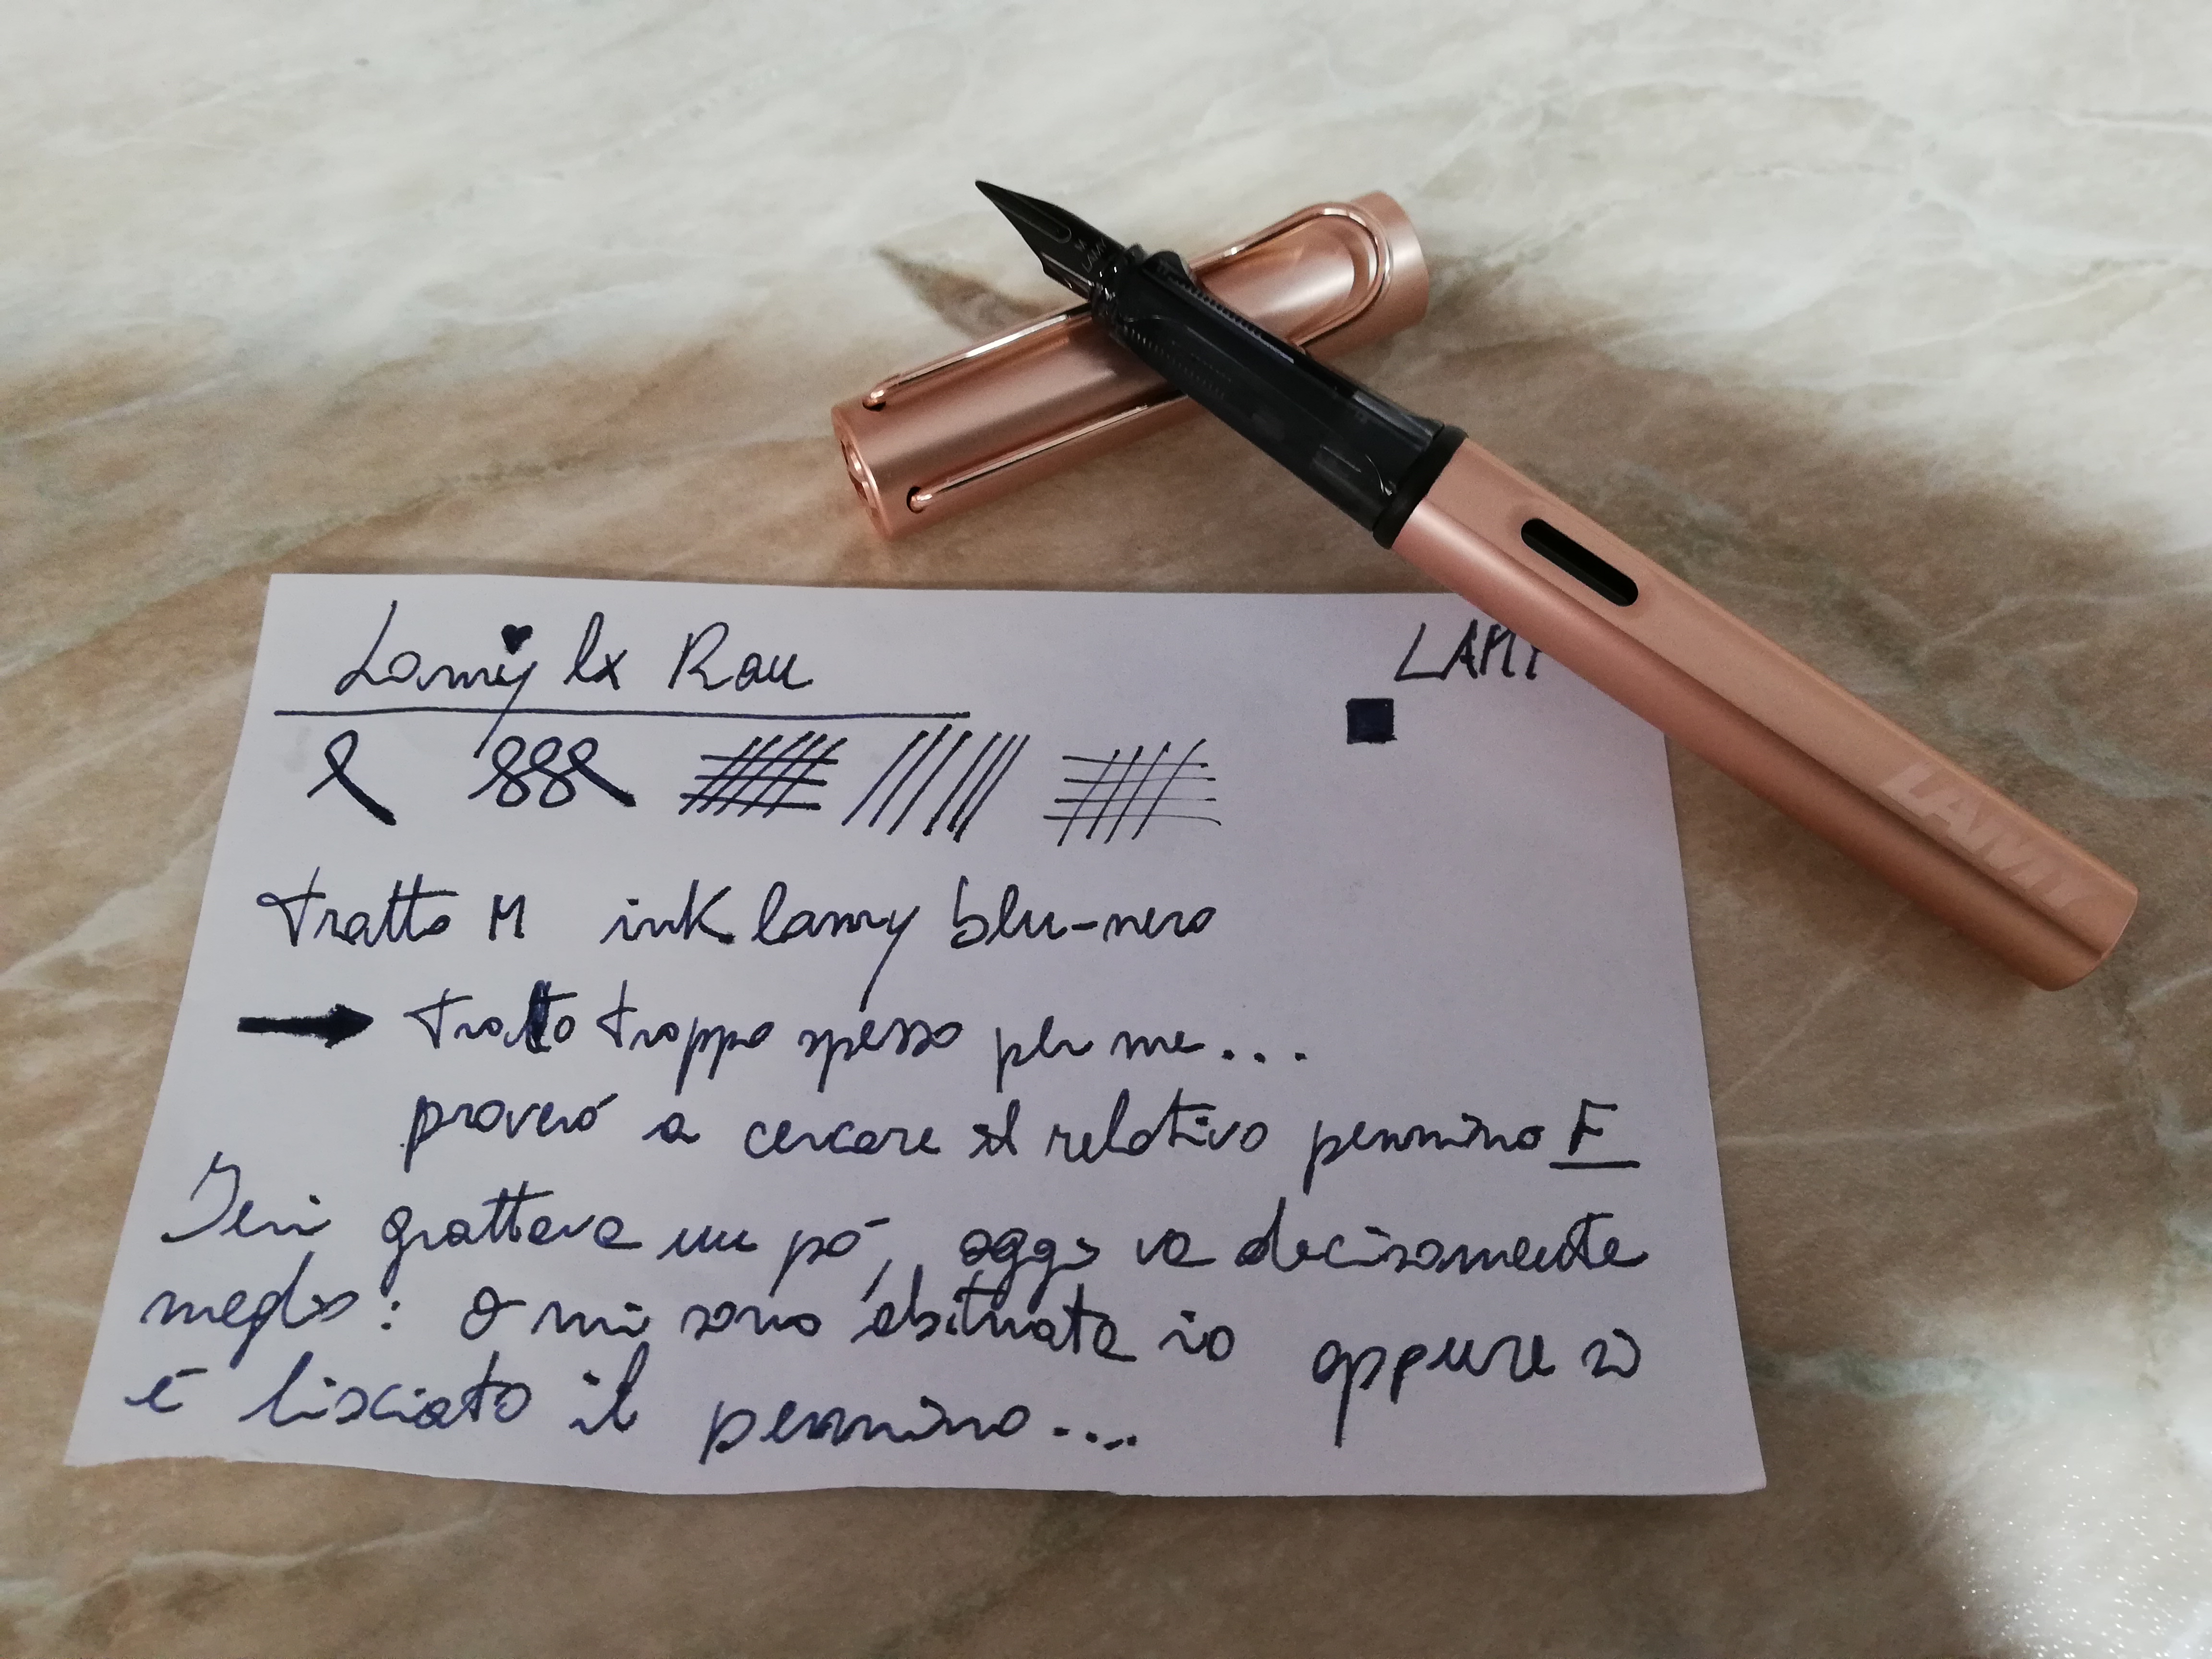 M
LAMY
LAMY
Lamy lx Rau
LAMY
Tratto M ink lamy blu-nero
Tratto troppo spesso per me...
proveró a cercare il relativo pennino F
Ieri grattava un pó, oggi va decisamente
meglio: o mi sono abituata io oppure si
é lisciato il pennino....